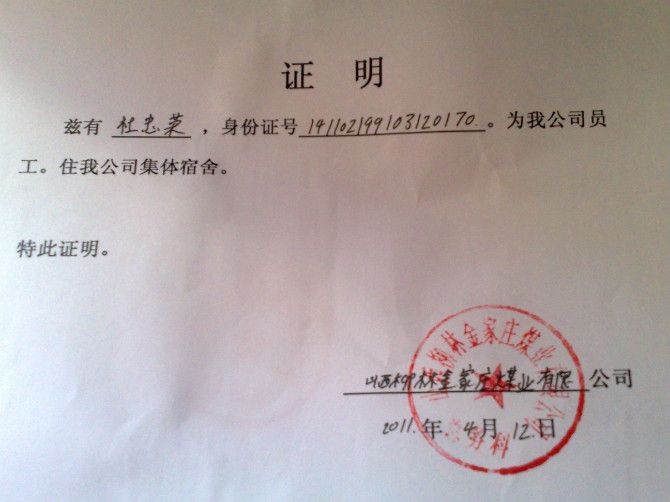 证 明
兹有 杜忠荣 ，身份证号 141102199103120170 。为我公司员
工。住我公司集体宿舍。
特此证明。
山西柳林金家庄煤业有限 公司
2011.年.4月.12.日
山西柳林金家庄煤业有限公司